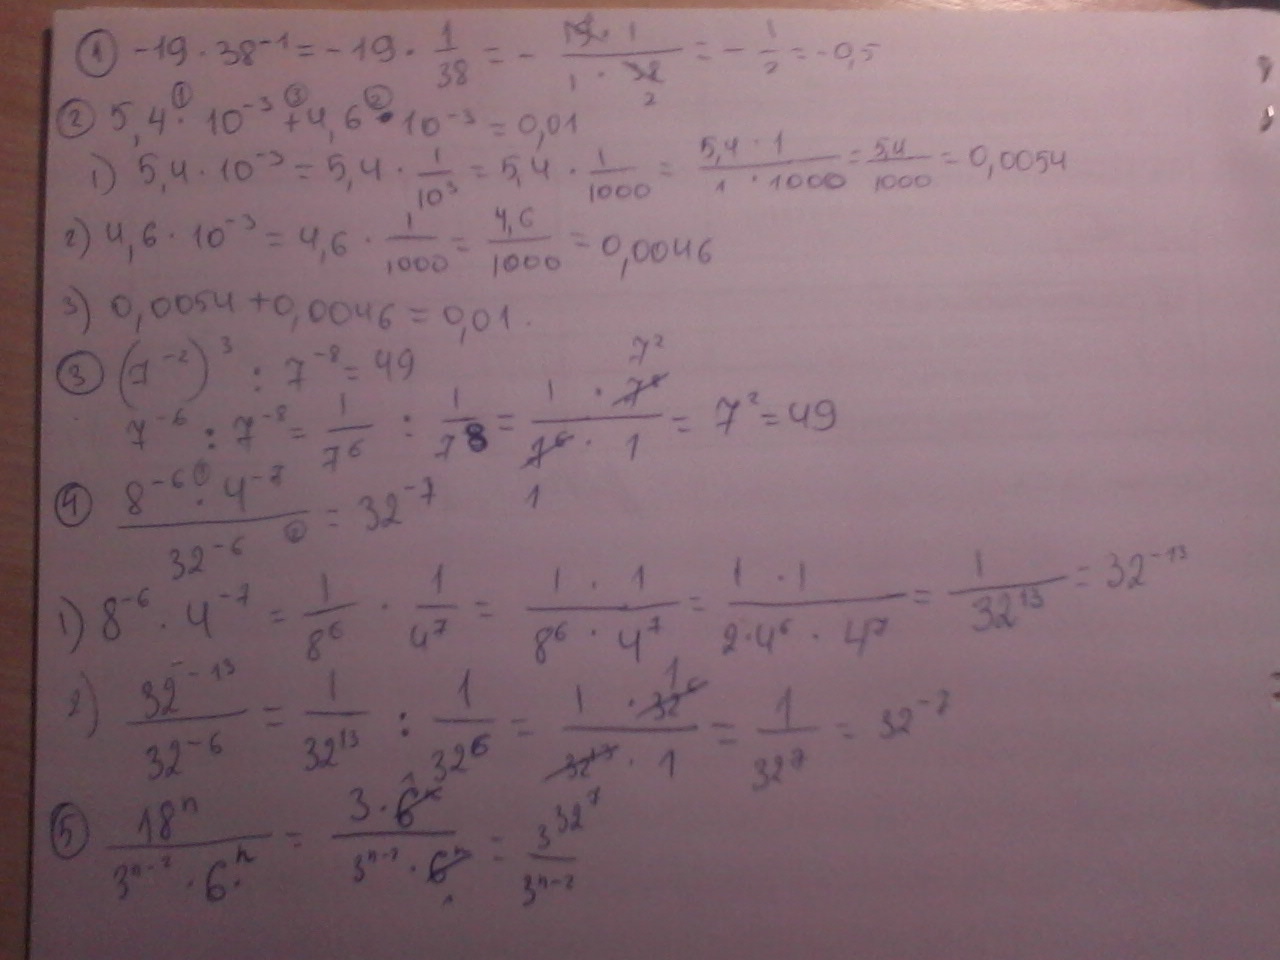 ① -19 · 38⁻¹ = -19 · 1/38 = - (19 · 1)/(1 · 38) = - 1/2 = -0,5
② 5,4 · 10⁻³ + 4,6 · 10⁻³ = 0,01
1) 5,4 · 10⁻³ = 5,4 · 1/10³ = 5,4 · 1/1000 = (5,4 · 1)/(1 · 1000) = 5,4/1000 = 0,0054
2) 4,6 · 10⁻³ = 4,6 · 1/1000 = 4,6/1000 = 0,0046
3) 0,0054 + 0,0046 = 0,01.
③ (7⁻²)³ : 7⁻⁸ = 49
7⁻⁶ : 7⁻⁸ = 1/7⁶ : 1/7⁸ = (1 · 7⁸)/(7⁶ · 1) = 7² = 49
④ (8⁻⁶ · 4⁻⁷)/32⁻⁶ = 32⁻⁷
1) 8⁻⁶ · 4⁻⁷ = 1/8⁶ · 1/4⁷ = (1 · 1)/(8⁶ · 4⁷) = (1 · 1)/(2 · 4⁶ · 4⁷) = 1/32¹³ = 32⁻¹³
2) 32⁻¹³/32⁻⁶ = 1/32¹³ : 1/32⁶ = (1 · 32⁶)/(32¹³ · 1) = 1/32⁷ = 32⁻⁷
⑤ 18ⁿ/(3ⁿ⁻² · 6ⁿ) = (3 · 6ⁿ)/(3ⁿ⁻² · 6ⁿ) = 3/3ⁿ⁻²